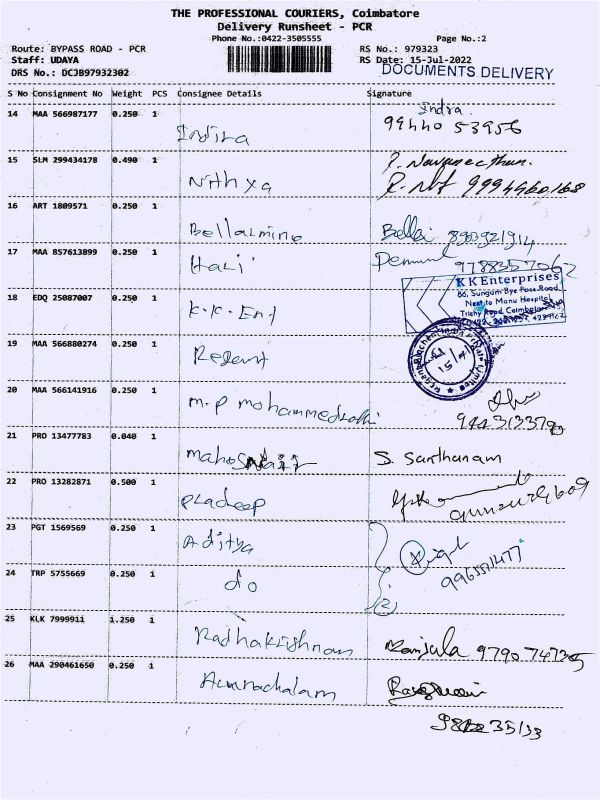 THE PROFESSIONAL COURIERS, Coimbatore
Delivery Runsheet - PCR
Phone No.:0422-3505555
Page No.:2
Route: BYPASS ROAD - PCR
RS No.: 979323
Staff: UDAYA
RS Date: 15-Jul-2022
DRS No.: DCJB97932302
DOCUMENTS DELIVERY
S No Consignment No Weight PCS Consignee Details Signature
14 MAA 566987177 0.250 1
Indira
Indra
99440 53956
15 SLM 299434178 0.490 1
Nithya
16 ART 1809571 0.250 1
Bellalmine
Bellai 890921914
17 MAA 857613899 0.250 1
Hali
9788357062
18 EDQ 25087007 0.250 1
K.K.Ent
KKEnterprises
86, Sungam Bye Pass Road
Next to Manu Hospital
Trichy Road Coimbatore
19 MAA 566880274 0.250 1
Regent
20 MAA 566141916 0.250 1
M.P Mohammed
21 PRO 13477783 0.040 1
S. Santhanam
22 PRO 13282871 0.500 1
Pradeep
23 PGT 1569569 0.250 1
Aditya
24 TRP 5755669 0.250 1
do
(2)
25 KLK 7999911 1.250 1
Radhakrishnan
Manjula
26 MAA 290461650 0.250 1
Arunachalam